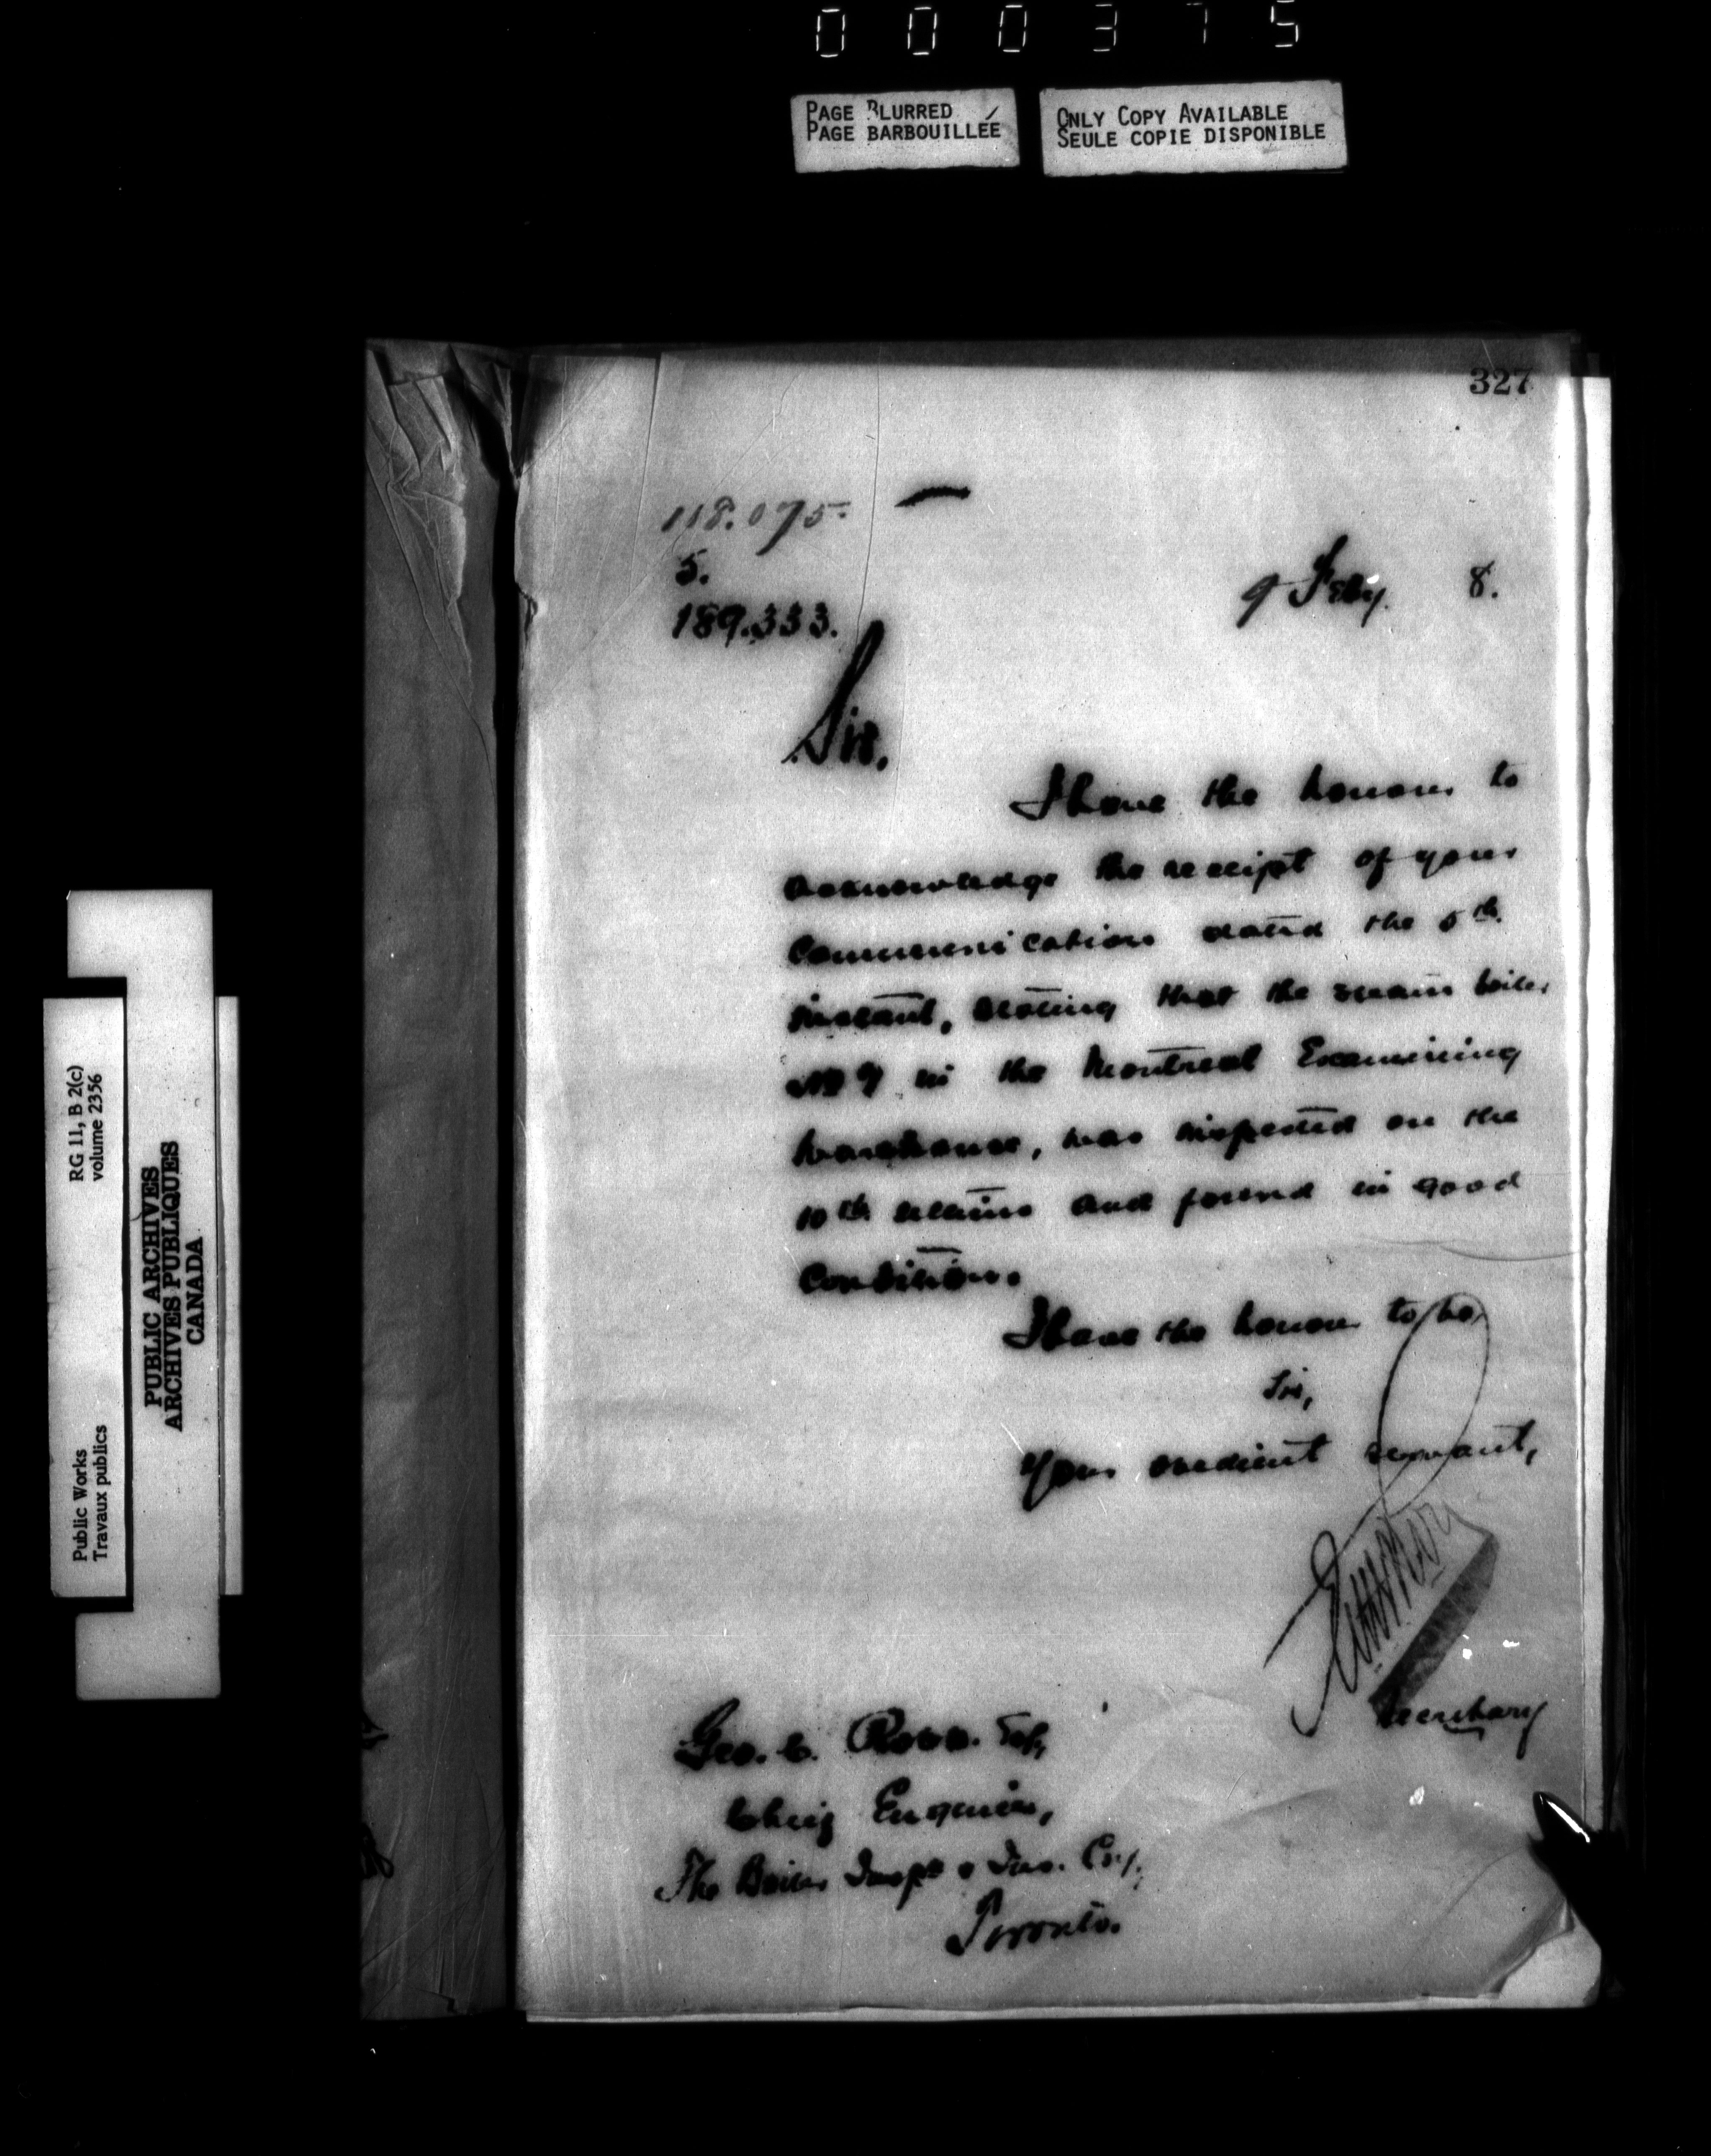 000375
PAGE BLURRED
PAGE BARBOUILLÉE
ONLY COPY AVAILABLE
SEULE COPIE DISPONIBLE
327
118.075.
5.
189.333.
9 Feby. 8.
Sir.
I have the honour to
acknowledge the receipt of your
communication dated the 5th
instant, stating that the steam boiler
No 9 in the Montreal Examining
warehouse, was inspected on the
10th ultimo and found in good
condition.
I have the honour to be,
Sir,
Your obedient servant,
Secretary
Geo. C. Robb. Esq,
Chief Engineer,
The Boiler Insp. & Ins. Coy,
Toronto.
RG 11, B 2(c)
volume 2356
PUBLIC ARCHIVES
ARCHIVES PUBLIQUES
CANADA
Public Works
Travaux publics